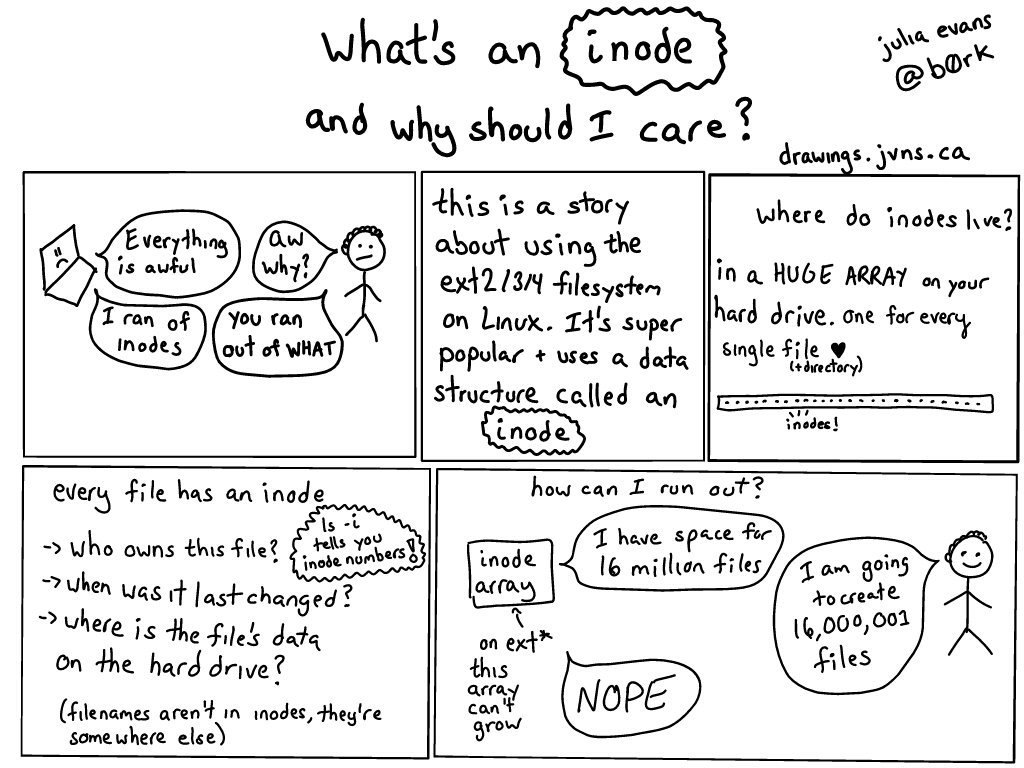 What's an inode
and why should I care?
julia evans
@b0rk
drawings.jvns.ca
Everything
is awful
aw
why?
I ran of
inodes
you ran
out of WHAT
this is a story
about using the
ext2/3/4 filesystem
on Linux. It's super
popular + uses a data
structure called an
inode
where do inodes live?
in a HUGE ARRAY on your
hard drive. one for every
single file ♥
(+directory)
inodes!
every file has an inode
ls -i
tells you
inode numbers!
-> who owns this file?
-> when was it last changed?
-> where is the file's data
on the hard drive?
(filenames aren't in inodes, they're
somewhere else)
how can I run out?
inode
array
I have space for
16 million files
I am going
to create
16,000,001
files
on ext*
this
array
can't
grow
NOPE